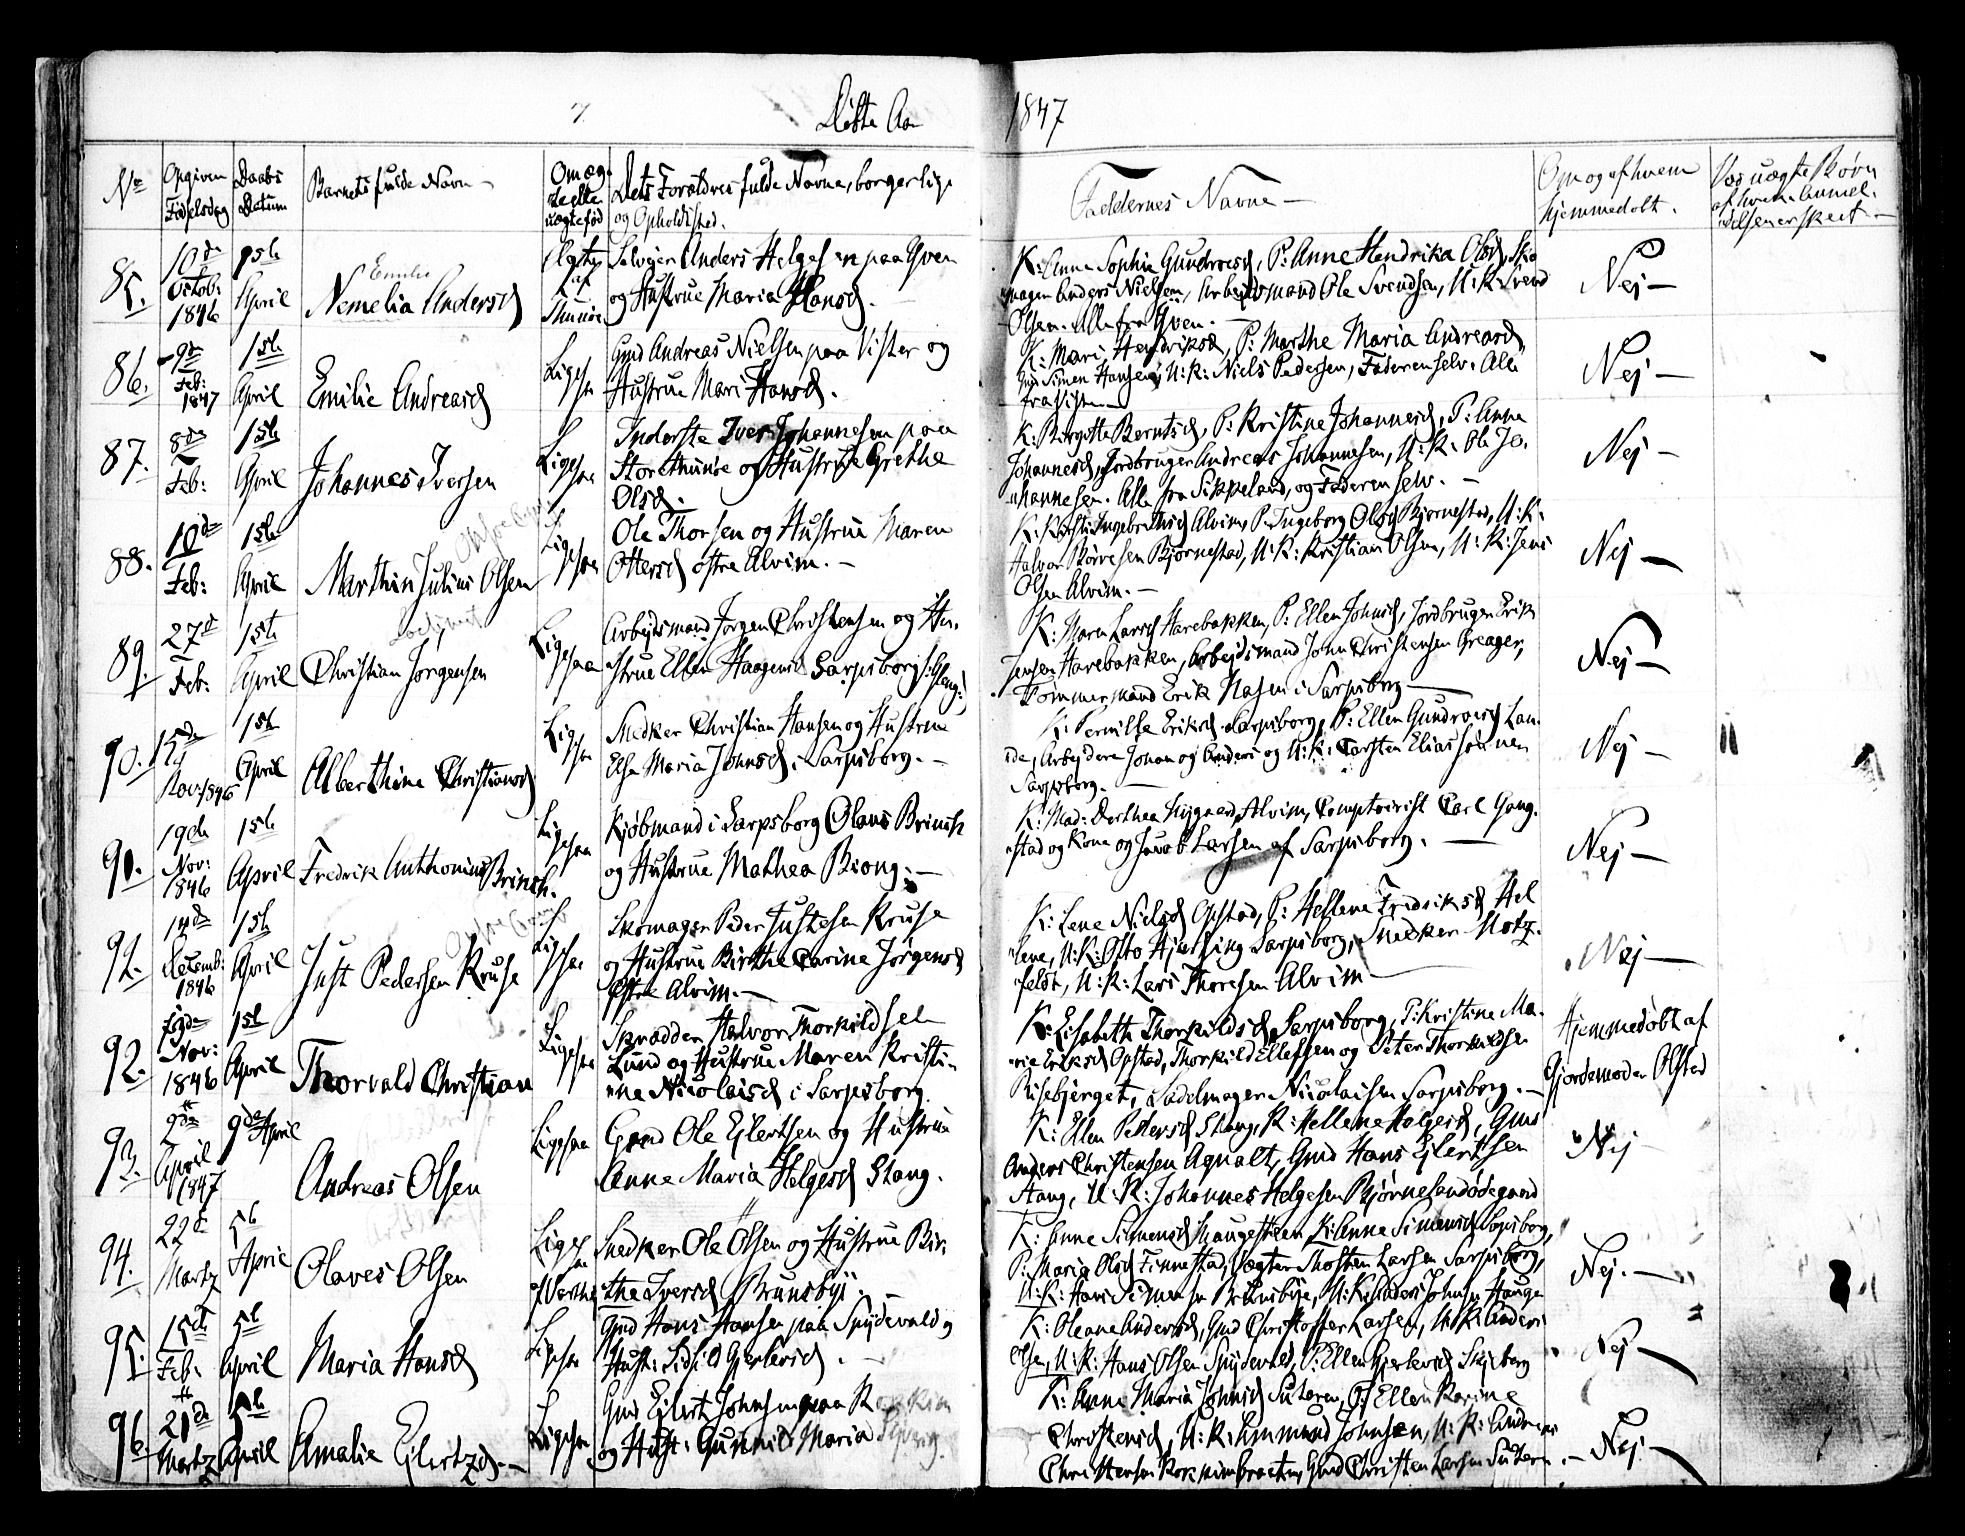 Døbte Aar 1847
No
Opgiven Fødselsdag
Daabs Datum
Barnets fulde Navn
Om ægte eller uægtefød
Dets Forældres fulde Navne, borgerlige
og Opholdssted.
Faddernes Navne
Om og af hvem
hjemmedøbt.
Ved uægte Børn
af hvem Anmel-
delsen er skeet
85. 10de Octob: 1846
April
Emilie
Nemelia Andersd
Selveier Anders Helgesen paa Yven
og Hustrue Maria Hansd.
K: Anna Sophia Gundersd, P: Anne Hendrika Olsd, Sko
magen Anders Nielsen, Arbeidsmand Ole Svendsen, U:K: Svend
Olsen. alle fra Yven.
Nej
86. 9de Feb: 1847
1ste April
Emilie Andreasd
Ligesaa
Gmd Andreas Nielsen paa Vister og
Hustrue Mari Hansd.
K: Mari Hendriksd, P: Marthe Maria Andreasd,
Gmd Simen Hansen, U:K: Niels Pedersen, Faderen selv. Alle
fra Vister
Nej
87. 8de Feb:
1ste April
Johannes Iversen
Ligesaa
Inderste Iver Johannesen paa
Store Thunøe og Hustrue Grethe
Olsd.
K: Birgitte Berntsd, P: Kristine Johannesd, P: Anne
Johannesd, Jordbruger Andreas Johannesen, U:K: Ole Jo-
hannesen. Alle fra Sikkeland, og Faderen selv.
Nej
88. 10de Feb:
1ste April
Marthin Julius Olsen
Ligesaa
Ole Thorsen og Hustrue Maren
Ottersd østre Alvim.
K: Kirsti Ingebretsd Alvim, P: Ingeborg Olsd Bjørnestad, U:K:
Halvor Børresen Bjørnestad, U:K: Kristian Olsen, U:K: Jens
Olsen Alvim.
Nej
89. 27de Feb:
1ste April
Christian Jørgensen
Ligesaa
Arbejdsmand Jørgen Christensen og Hu-
strue Ellen Haagensd Sarpsborg
K: Maren Larsd Harebakken, P: Ellen Johnsd, Jordbruger Erik
Jensen Harebakken, Arbejdsmand John Christensen Greager,
Tømmermand Erik i Sarpsborg
Nej
90. 15de Nov: 1846
1ste April
Alberthine Christiansd
Ligesaa
Snedker Christian Hansen og Hustrue
Else Maria Johnsd i Sarpsborg.
K: Pernille Eriksd Sarpsborg, P: Ellen Gundersd Lan-
de, Arbejdere Johan og Anders og U:K: Carsten Elias
Sarpsborg.
Nej
91. 19de Nov: 1846
1ste April
Fredrik Anthonius Brinch.
Ligesaa
Kjøbmand i Sarpsborg Olaus Brinch
og Hustrue Mathea Brong.
K: Mad: Dorthea Nygaard, Alvim, Comptoirist Carl Gang-
stad og Kone og Jacob Larsen af Sarpsborg.
Nej
91. Decemb: 1846
1ste April
Just Pedersen Kruse
Ligesaa
Skomager Peder Justesen Kruse
og Hustrue Birthe Carine Jørgensd
Østre Alvim.
K: Lene Nielsd Opstad, P: Hellene Fredriksd Hel
lene, U:K: Otto Hjelsing Sarpsborg, Snedker Motz-
feldt, U:K: Lars Thoresen Alvim
Nej
92. Nov: 1846
1ste April
Thorvald Christian
Ligesaa
Skrædder Halvor Thorkildsen
Lund og Hustrue Maren Kristi-
ne Nicolaisd i Sarpsborg.
K: Elisabeth Thorkildsd Sarpsborg, P: Kristine Ma-
rie Eriksd Opstad, Thorkild Ellefsen og Peter Thorkildsen
Risebjerget, Sadelmager Nicolaisen Sarpsborg.
Hjemmedøbt af
Gjordemoder Olstad
93. 2den April 1847
9de April
Andreas Olsen
Ligesaa
Gmd Ole Ejlertsen og Hustrue
Anne Maria Helgesd Stang.
K: Ellen Pedersd Stang, K: Hellene Helgesd, Gmd
Anders Christensen Agnalt, Gmd Hans Ejlertsen
Stang, U:K: Johannes Helgesen Bjørnelandødegaard
Nej
94. 22de Martz
5te April
Olaves Olsen
Ligesaa
Snedker Ole Olsen og Hustrue Bir-
the Iversd Brunsby.
K: Anne Simensd Haugesteen K: Anne Simensd Sarpsborg,
P: Maria Olsd Finnestad, Vægter Thosten Larsen Sarpsborg,
U:K: Hans Simensen Brunsbye, U:K: Anders Johnsen Hauge
Nej.
95. 15de Feb:
5te April
Maria Hansd
Ligesaa
Gmd Hans Hansen paa Spydevold og
Hust: Sidsil Gjerlevsd.
K: Oleane Andersd, Gmd Christoffer Larsen, U:K: Anders
Olsen, U:K: Hans Olsen Spydevold, P: Ellen Gjerlevsd Skjeberg
Nej
96. 21de Martz
5te April
Amalie Ejlertzd.
Ligesaa
Gmd Eilert Johnsen paa
og Hust: Gunnild Maria
K: Anne Maria Johnsd Suteren, P: Ellen Karine
Christensd, U:K: Ammund Johnsen, U:K: Andreas
Christensen, Gmd Christen Larsen Suteren.
Nej